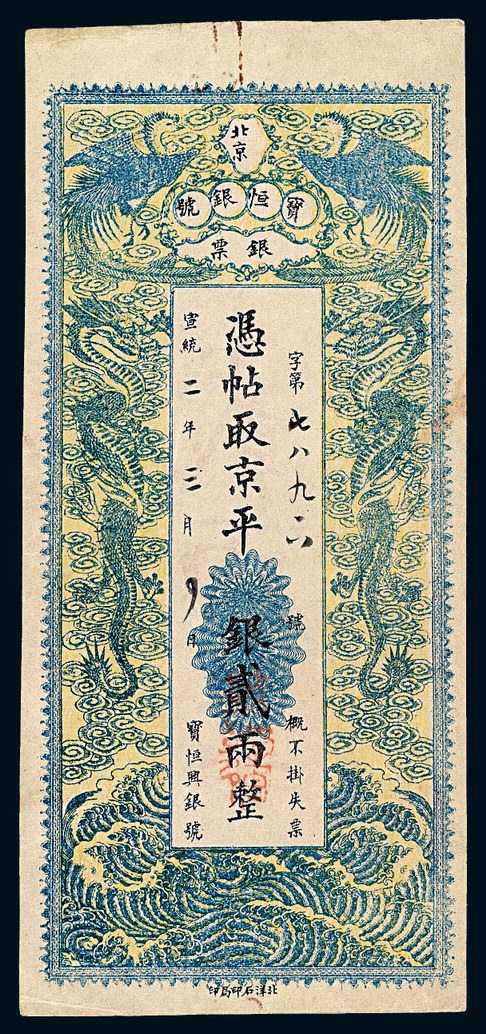 北京
寶恒銀號
銀票
字第七八九六號 概不掛失票
憑帖取京平銀貳兩整
宣統二年三月 日 寶恒興銀號
北洋石印局印